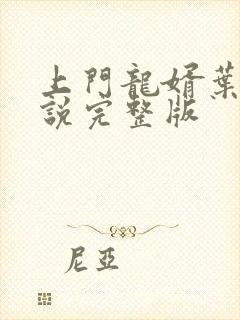 上門龍婿葉
說完整版
尼亞